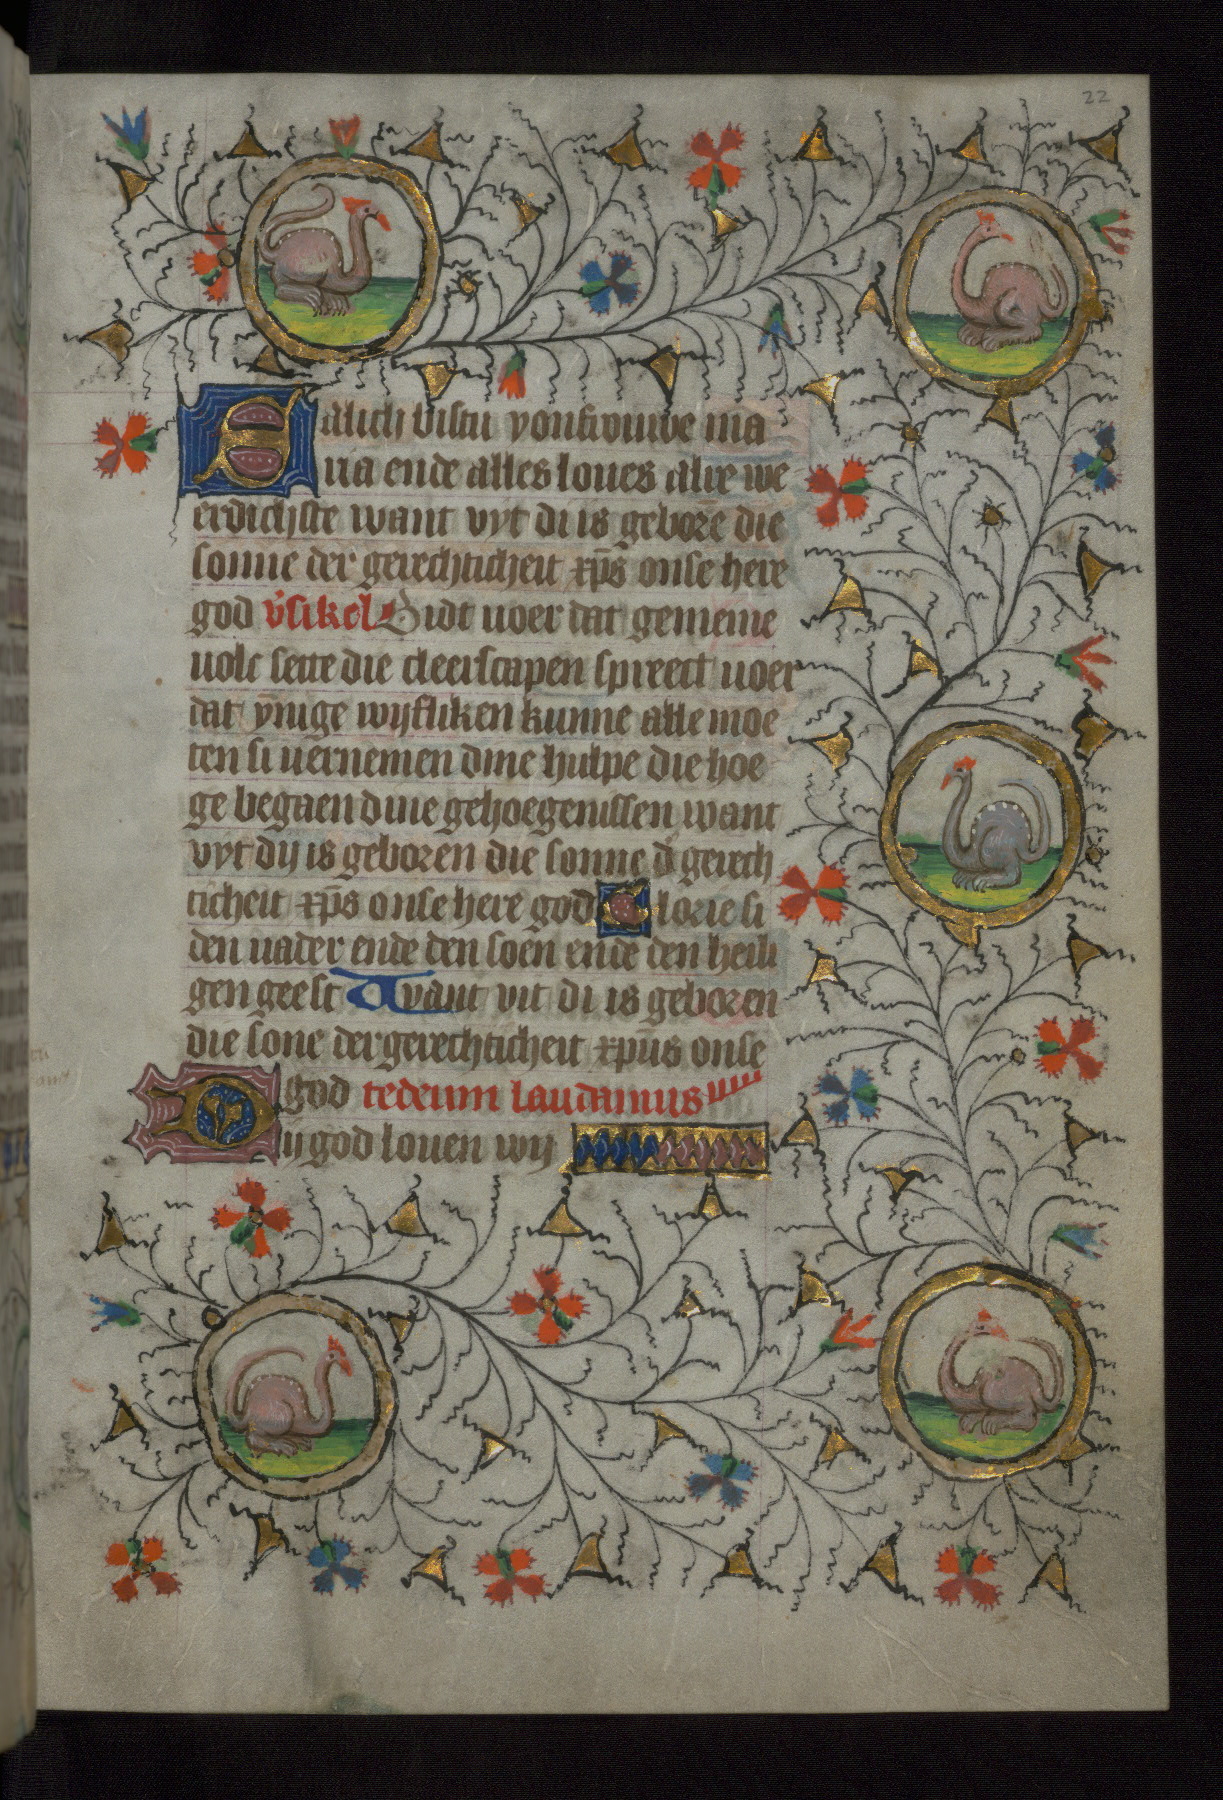 22
Salich bistu yonfrouwe ma
ria ende alles loues alre we
erdichste want vyt di is geborē die
sonne der gerechticheit xp̄s onse here
god v̓sikel Bidt uoer dat gemeine
uolc sette die cleerscapen spreect uoer
dat ȳnige wijfliken kunne alle moe
ten si uernemen dine hulpe die hoe
ge begaen dine gehoegenissen want
vyt dij is geboren die sonne d̓ gerech
ticheit xp̄s onse here god Glorie si
den uader ende den soen ende den heili
gen geest Want vit di is geboren
die sone der gerechticheit xp̄us onse
god tedeum laudamus
Dij god louen wij